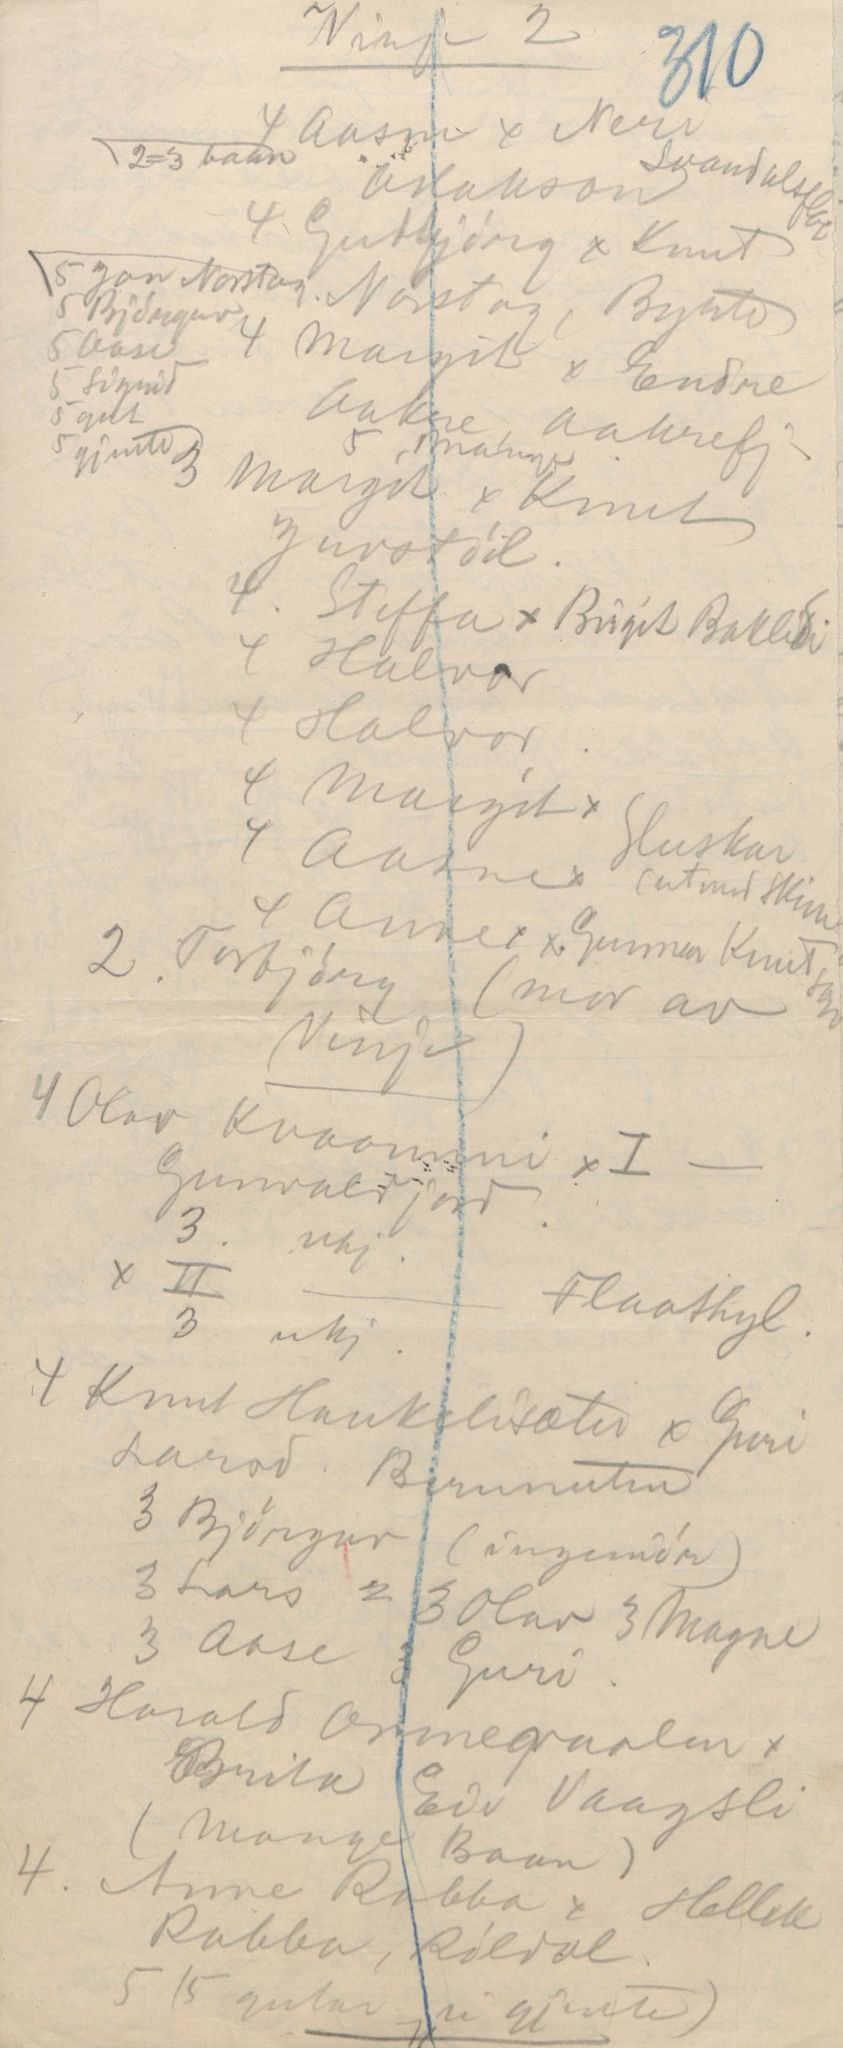 Vinje 2
310
4 Aasne x Neri
2=3 baan
Aslakson Svandalsflaa
4 Gudbjörg x Knut
Norstog, Bykto
5 Jon Norstog.
5 Björgav
5 Aase
5 Signid
5 gut
5 gjente
4 Margit x Endre
Aakre, Aakrefj.
5 mange
3 Margit x Knut
Jurstöil.
4. Steffa x Birgit Baklidi
4 Halvor
4 Halvor.
4 Margit x
4 Aasne x Gluskar
(ut med Skien
4 Anne x x Gunnar Knut
2. Torbjörg (mor av
Vinje)
4 Olav Kvaamni x I —
Gunvaldjord.
3. ukj.
x II — Flaathyl.
3 ukj.
4 Knut Haukelisæter x Guri
Larsd.
3 Björgav (ingeniör)
3 Lars 3 Olav 3 Magne
3 Aase 3 Guri.
4 Harald Ormegraalen x
Brita Eie Vaagsli
(Mange Baan)
4. Anne Rabba x Hellek
Rabba, Röldal.
5 (5 gutar, ei gjente)